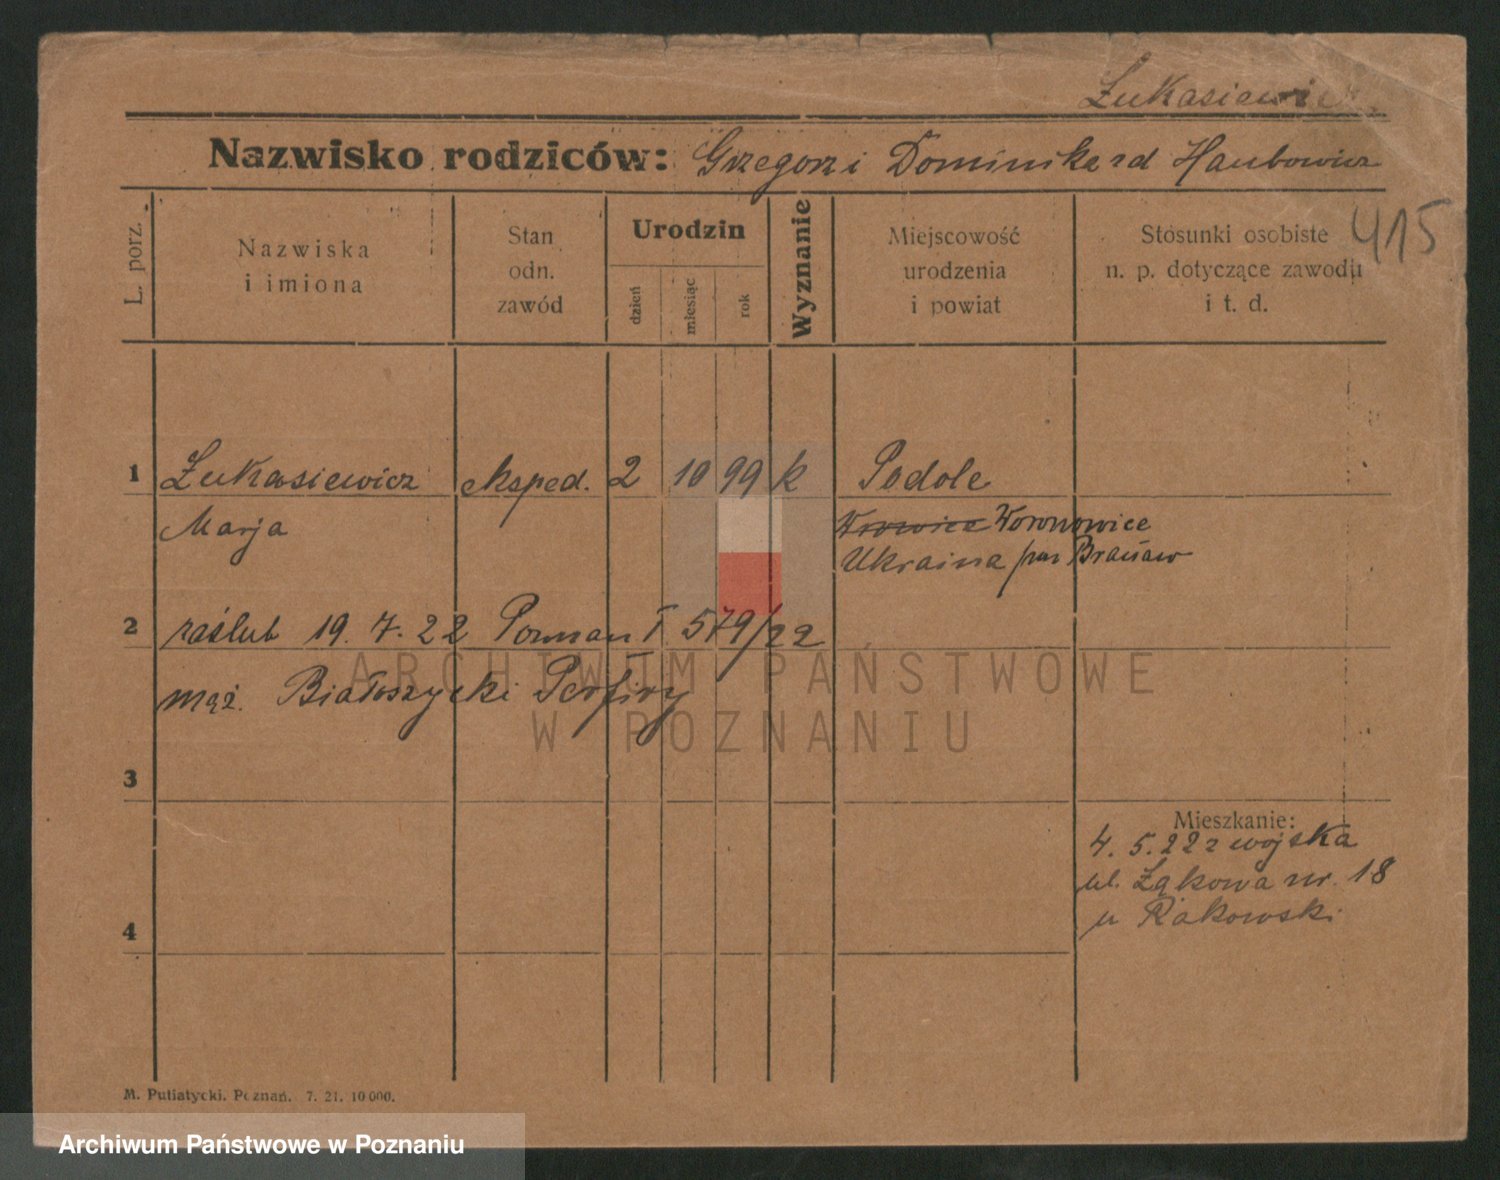 Łukasiewicz
Nazwisko rodziców: Grzegorz i Dominika zd Haubowicz
415
L. porz.
Nazwiska
i imiona
Stan
odn.
zawód
Urodzin
dzień
miesiąc
rok
Wyznanie
Miejscowość
urodzenia
i powiat
Stosunki osobiste
n. p. dotyczące zawodu
i t. d.
1 Łukasiewicz eksped. 2 10 99 k Podole
Marja Woronowice
Ukraina pow Bracław
2 zaślub 19. 7. 22 Poznań I 579/22
mąż. Białoszycki Porfiry
3
Mieszkanie:
4. 5. 22 z wojska
ul. Łąkowa nr. 18
u Rakowski
4
M. Putiatycki. Poznań. 7. 21. 10 000.
ARCHIWUM PAŃSTWOWE
W POZNANIU
Archiwum Państwowe w Poznaniu